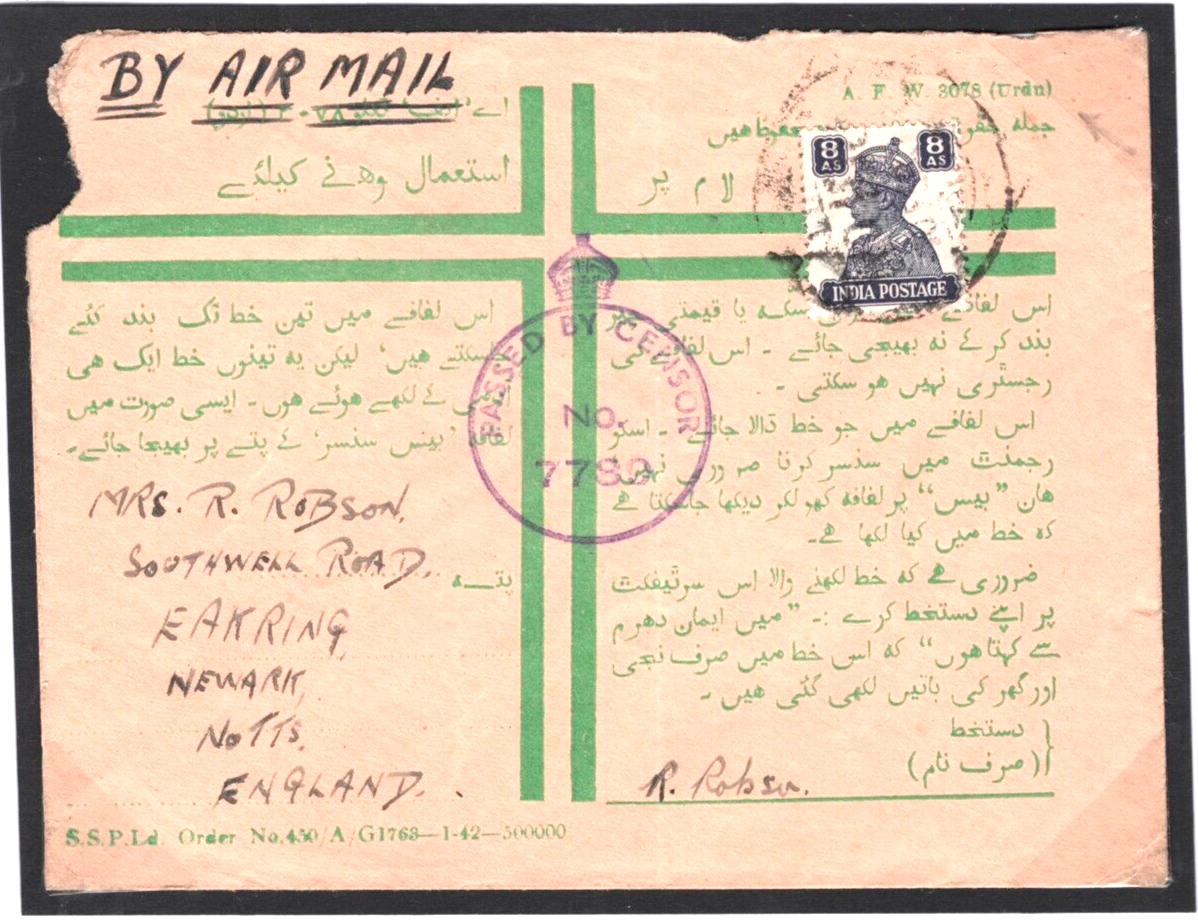 BY AIR MAIL
A. F. W. 3078 (Urdu)
جملہ
محفوظ ہیں
لام پر
استعمال وھنے کیلئے
8 AS 8 AS
INDIA POSTAGE
PASSED BY CENSOR
No.
اس لفافے میں
سکہ یا قیمتی
بند کرکے نہ بھیجی جائے ۔ اس لفافے کی
رجسٹری نہیں ہو سکتی ۔
اس لفافے میں جو خط ڈالا جائے ۔ اسکو
رجمنٹ میں سنسر کرنا ضروری نہیں
ھاں ”بیس“ پر لفافہ کھولکر دیکھا جاسکتا ہے
کہ خط میں کیا لکھا ہے۔
ضروری ہے کہ خط لکھنے والا اس سرٹیفکٹ
پر اپنے دستخط کرے :۔ ”میں ایمان دھرم
سے کہتا ہوں“ کہ اس خط میں صرف نجی
اور گھر کی باتیں لکھی گئی ہیں ۔
دستخط
(صرف نام)
R. Robson.
اس لفافے میں تین خط تک بند کئے
جاسکتے ہیں‘ لیکن یہ تینوں خط ایک ہی
کے لکھے ہوئے ہوں۔ ایسی صورت میں
لفافہ ’بیس سنسر‘ کے پتے پر بھیجا جائے۔
پتہ
MRS. R. ROBSON,
SOUTHWELL ROAD,
EAKRING,
NEWARK,
NOTTS.
ENGLAND.
S.S.P.Ld. Order No.450/A/G1768—1-42—500000